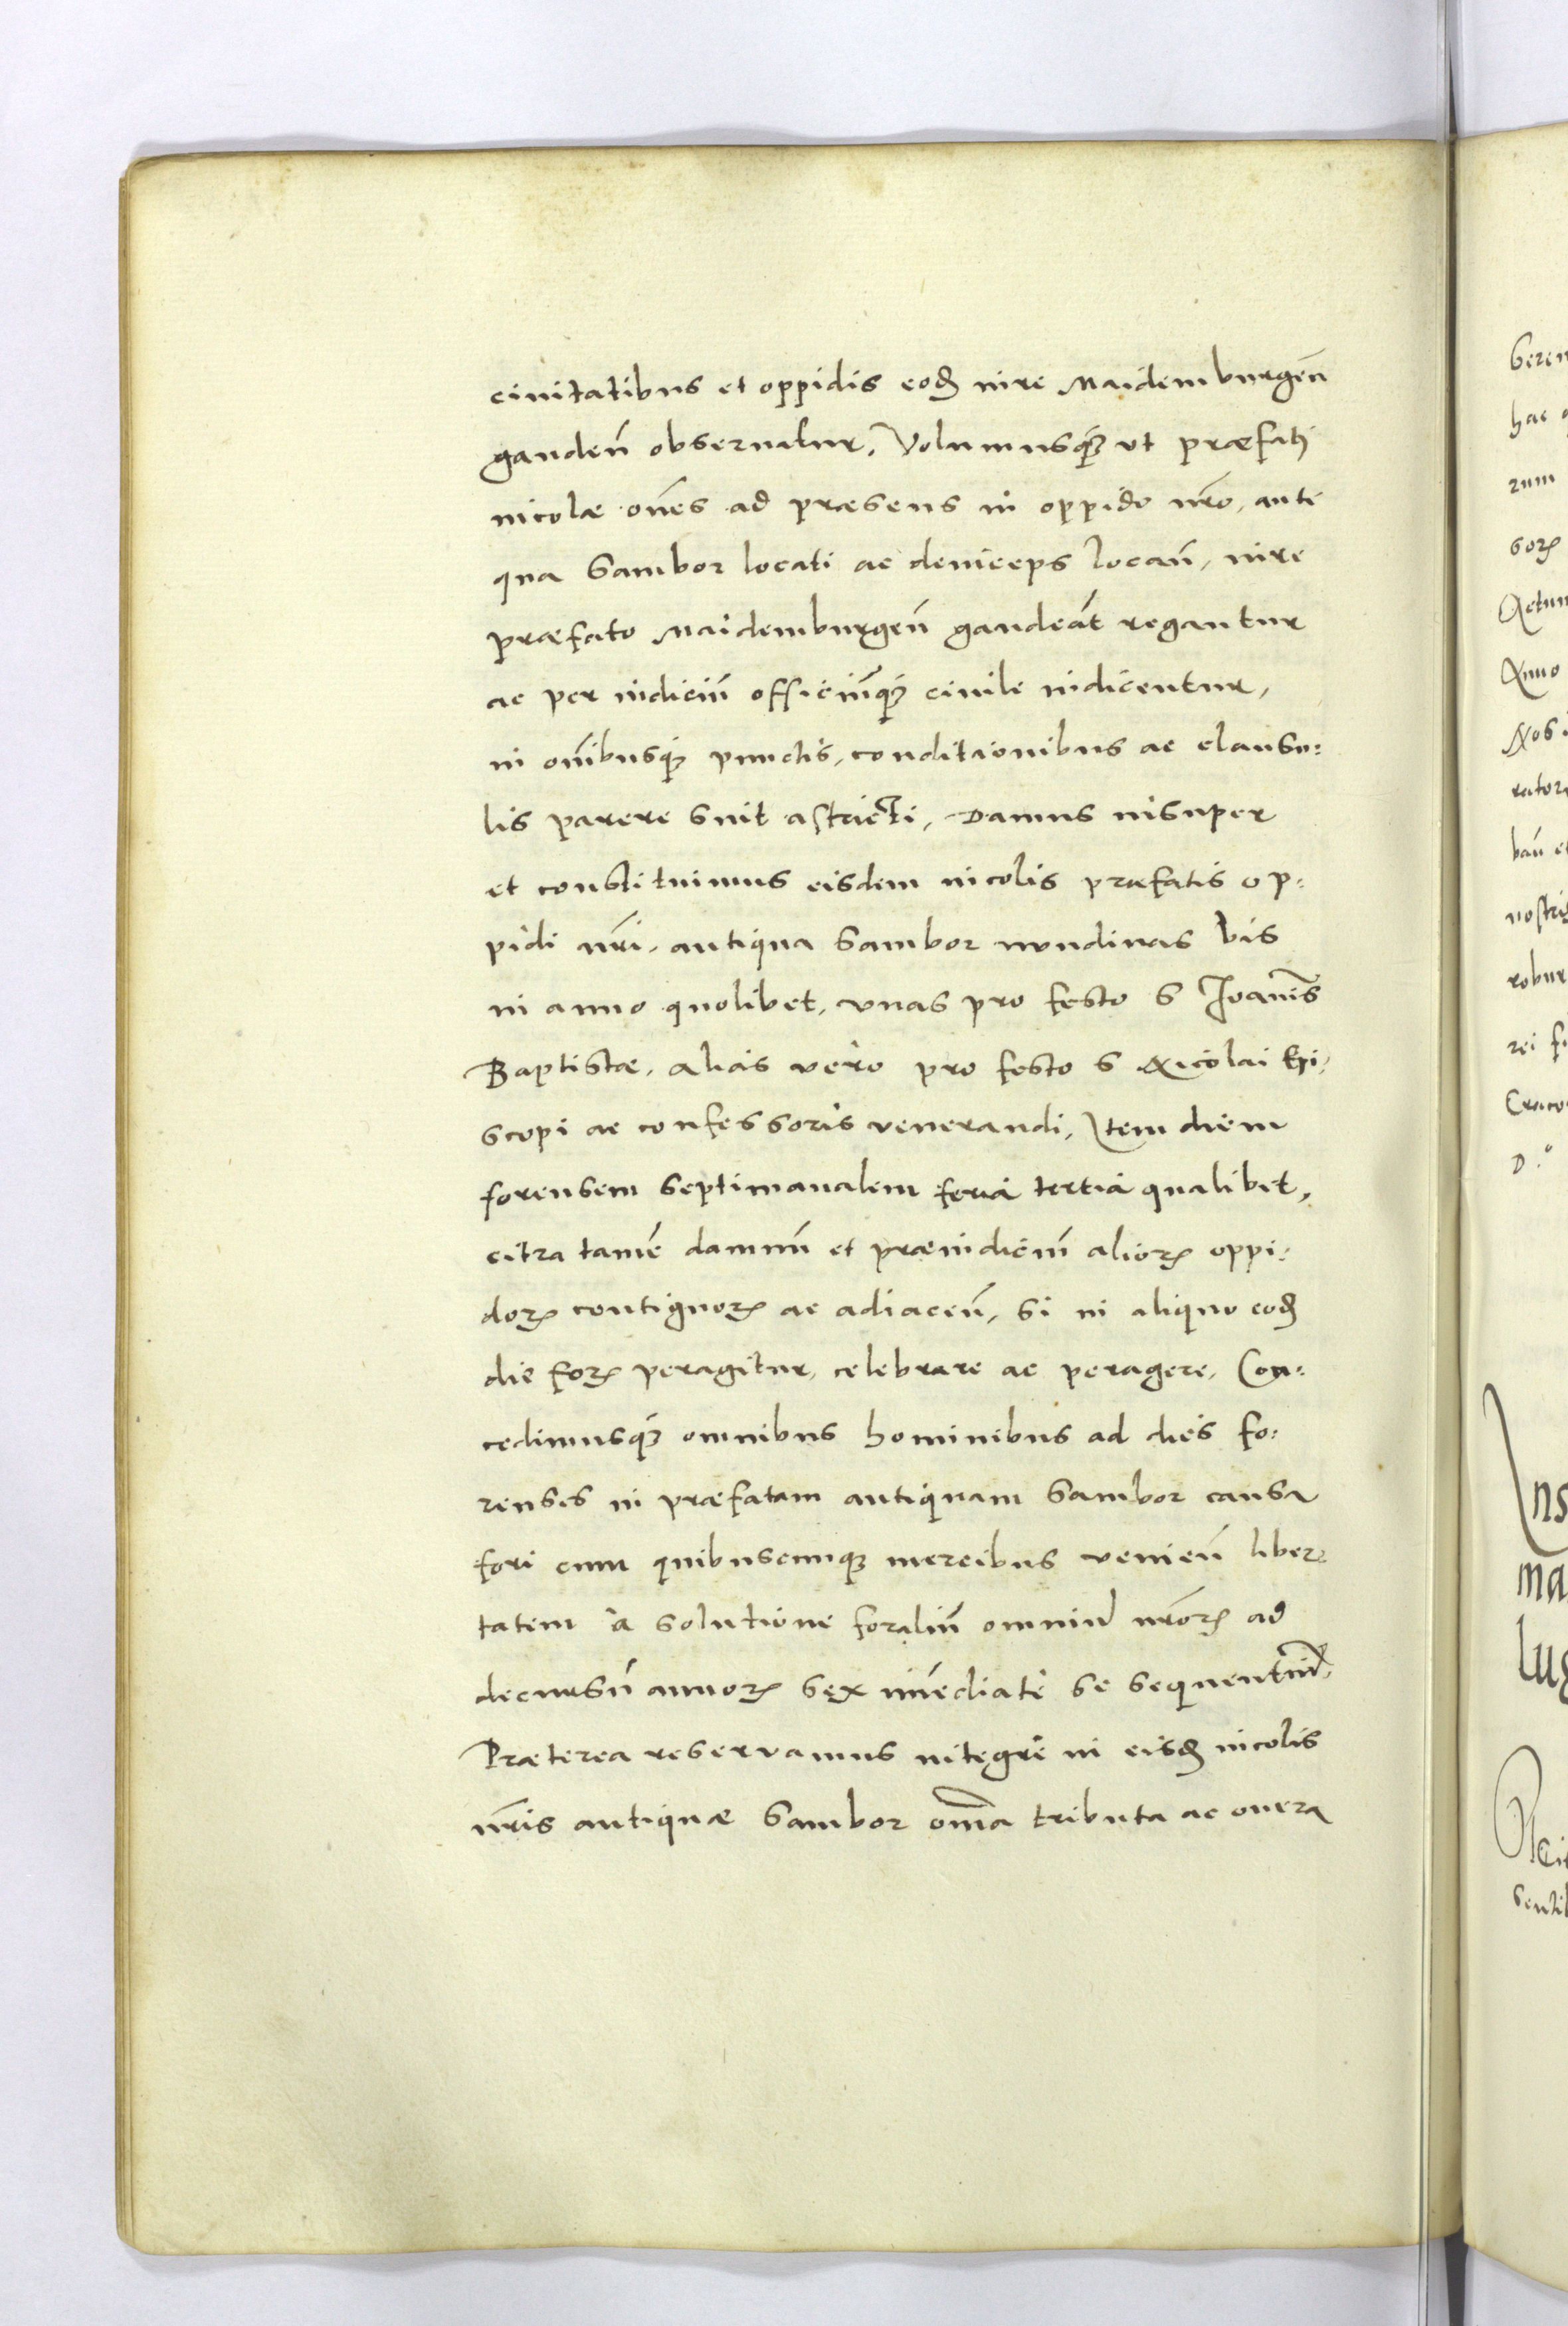 ciuitatibus et oppidis eoḋ iure Maidemburgeñ
gaudeñ obseruatur, Volumusq́ꝫ vt præfati
incolæ om̃es ad præsens in oppido nr̃o, anti
qua Sambor locati ac deinceps locañ, iure
præfato Maidemburgeñ gaudeāt regantur
ac per iudiciū officiūq́ꝫ ciuile iudicentur,
in om̃ibusq́ꝫ punctis, conditionibus ac clausu:
lis parere sint astricti, Damus insuper
et constituimus eisdem incolis præfatis op:
pidi nr̃i, antiqua Sambor nundinas bis
in anno quolibet, vnas pro festo S Joanīs
Baptistæ, alias vero pro festo S Nicolai Epi:
scopi ac confessoris venerandi, Item diem
forensem septimanalem feria tertia qualibet,
citra tamē damnū et præiudiciū alioꝝ oppi:
doꝝ contiguoꝝ ac adiaceñ, si in aliquo eoḋ
die foꝝ peragitur, celebrare ac peragere, Con:
cedimusq́ꝫ omnibus hominibus ad dies fo:
renses in præfatam antiquam Sambor causa
fori cum quibuscunqꝫ mercibus venieñ liber:
tatem à solutione foraliū omniū nr̃oꝝ ad
decursū annoꝝ sex im̃ediate se sequentiū,
Præterea reseruamus integre in eisḋ incolis
nr̃is antiquæ Sambor om̃ia tributa ac onera
hac
rum
soꝝ
Actum
Anno
Nos
bañ et
nostris
robur
rei fi
Craco
D.
Ins
ma